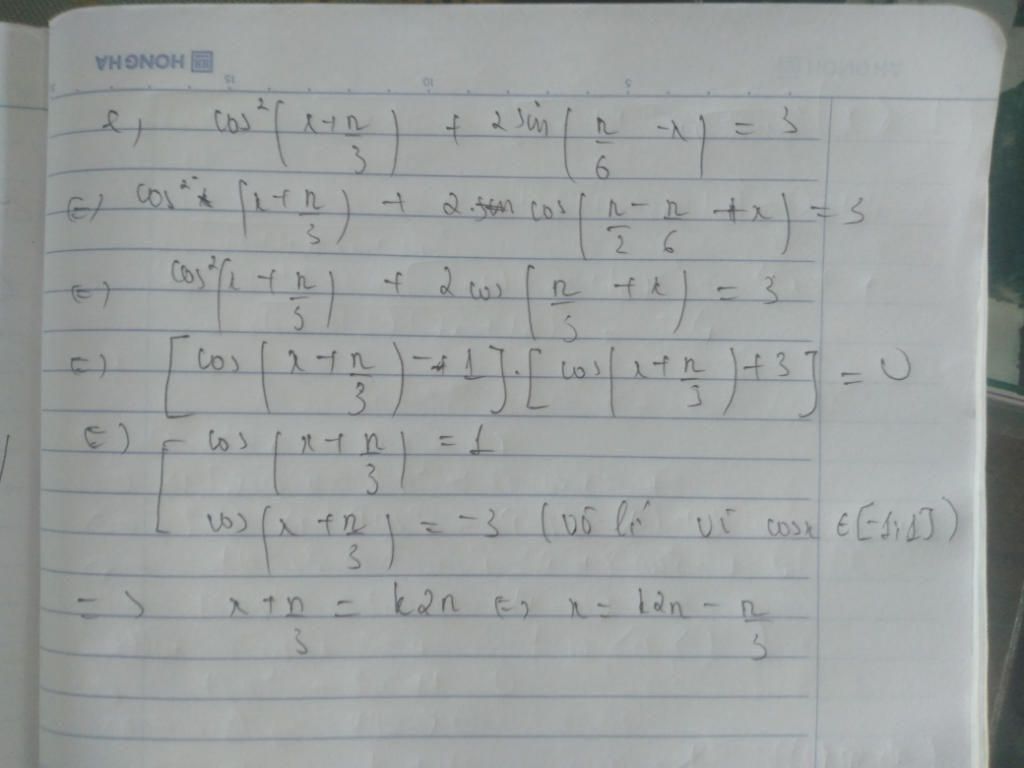 HONG HA
15 10 5
e, cos²(x+π/3) + 2 sin(π/6 -x) = 3
⇔ cos²(x+π/3) + 2. cos(π/2 - π/6 +x) = 3
⇔ cos²(x+π/3) + 2 cos(π/3 +x) = 3
⇔ [cos(x+π/3) - 1].[cos(x+π/3)+3] = 0
⇔ [ cos(x+π/3) = 1
cos(x+π/3) = -3 (vô lí vì cosx ∈[-1;1])
=> x+π/3 = k2π ⇔ x = k2π - π/3